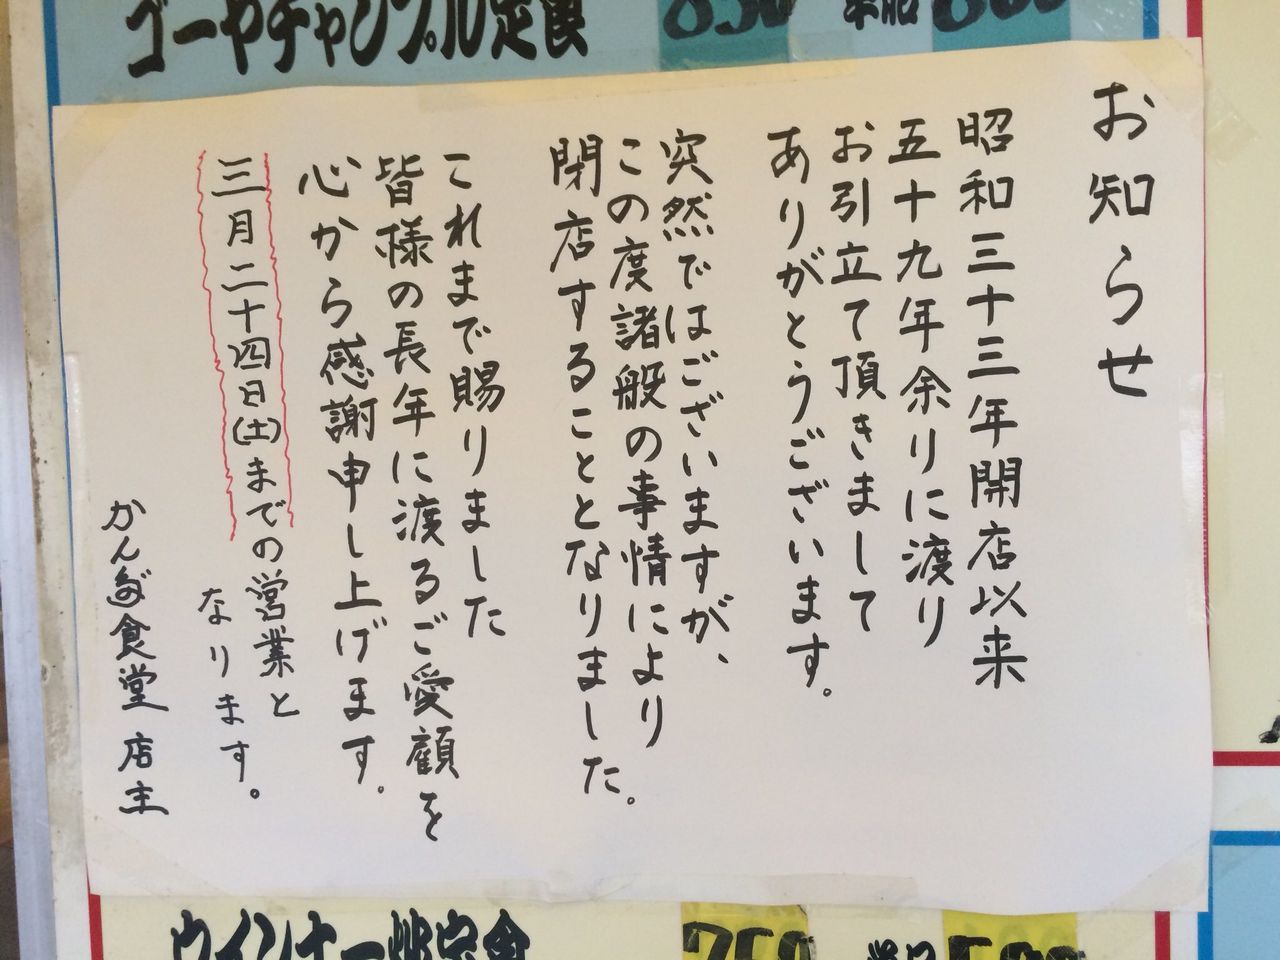 ゴーヤチャンプル定食 850 単品 800
お知らせ
昭和三十三年開店以来
五十九年余りに渡り
お引立て頂きまして
ありがとうございます。
突然ではございますが、
この度諸般の事情により
閉店することとなりました。
これまで賜りました
皆様の長年に渡るご愛顧を
心から感謝申し上げます。
三月二十四日(土)までの営業と
なります。
かんだ食堂 店主
ウインナー炒定食 750